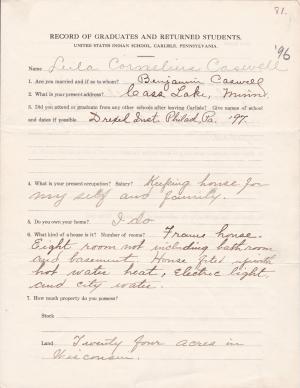 81.
RECORD OF GRADUATES AND RETURNED STUDENTS.
UNITED STATES INDIAN SCHOOL, CARLISLE, PENNSYLVANIA.
'96
Name Leila Cornelius Caswell
1. Are you married and if so to whom? Benjamin Caswell
2. What is your present address? Cass Lake, Minn.
3. Did you attend or graduate from any other schools after leaving Carlisle? Give names of school
and dates if possible. Drexel Inst. Philad. Pa. '97.
4. What is your present occupation? Salary? Keeping house for
my self and family.
5. Do you own your home? I do
6. What kind of a house is it? Number of rooms? Frame house.
Eight room not including bath room
and basement. House fited up with
hot water heat, Electric light
and city water.
7. How much property do you possess?
Stock
Land Twenty four acres in
Wisconsin.